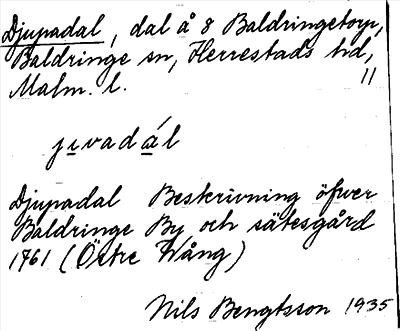 Djupadal, dal å 8 Baldringetorp,
Baldringe sn, Herrestads hd,
Malm. l. 11
jɩvadál
Djupadal Beskrivning öfwer
Baldringe By och sätesgård
1761 (Östre Wång)
Nils Bengtsson 1935